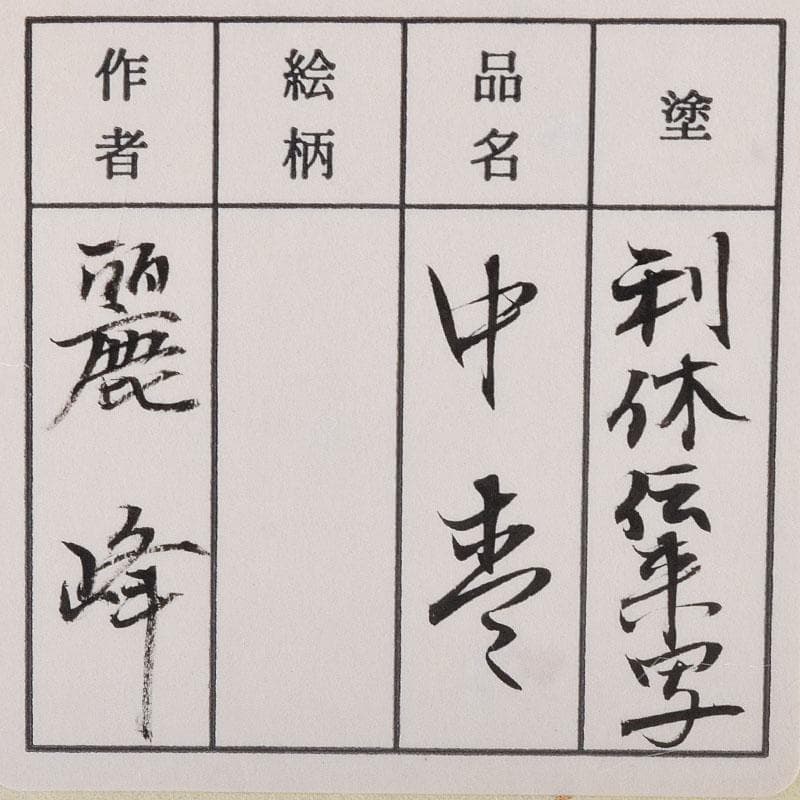 塗
利休伝来写
品名
中棗
絵柄
作者
麗峰